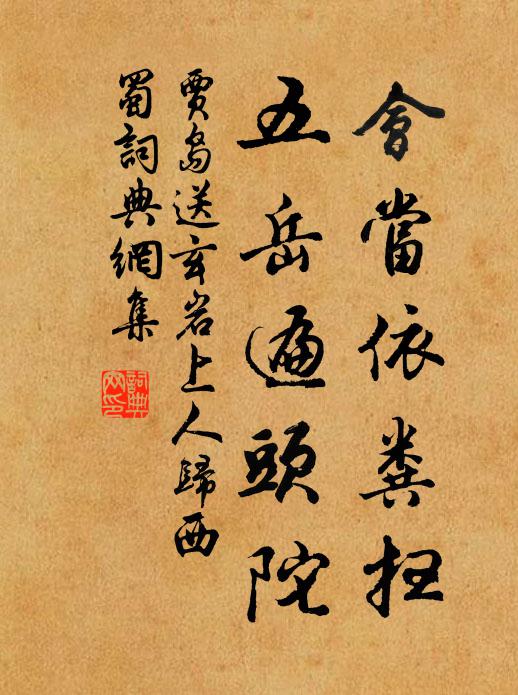 會當依糞扫
五岳遍頭陀
賈島送玄岩上人歸西
蜀詞典網集
詞典
网印